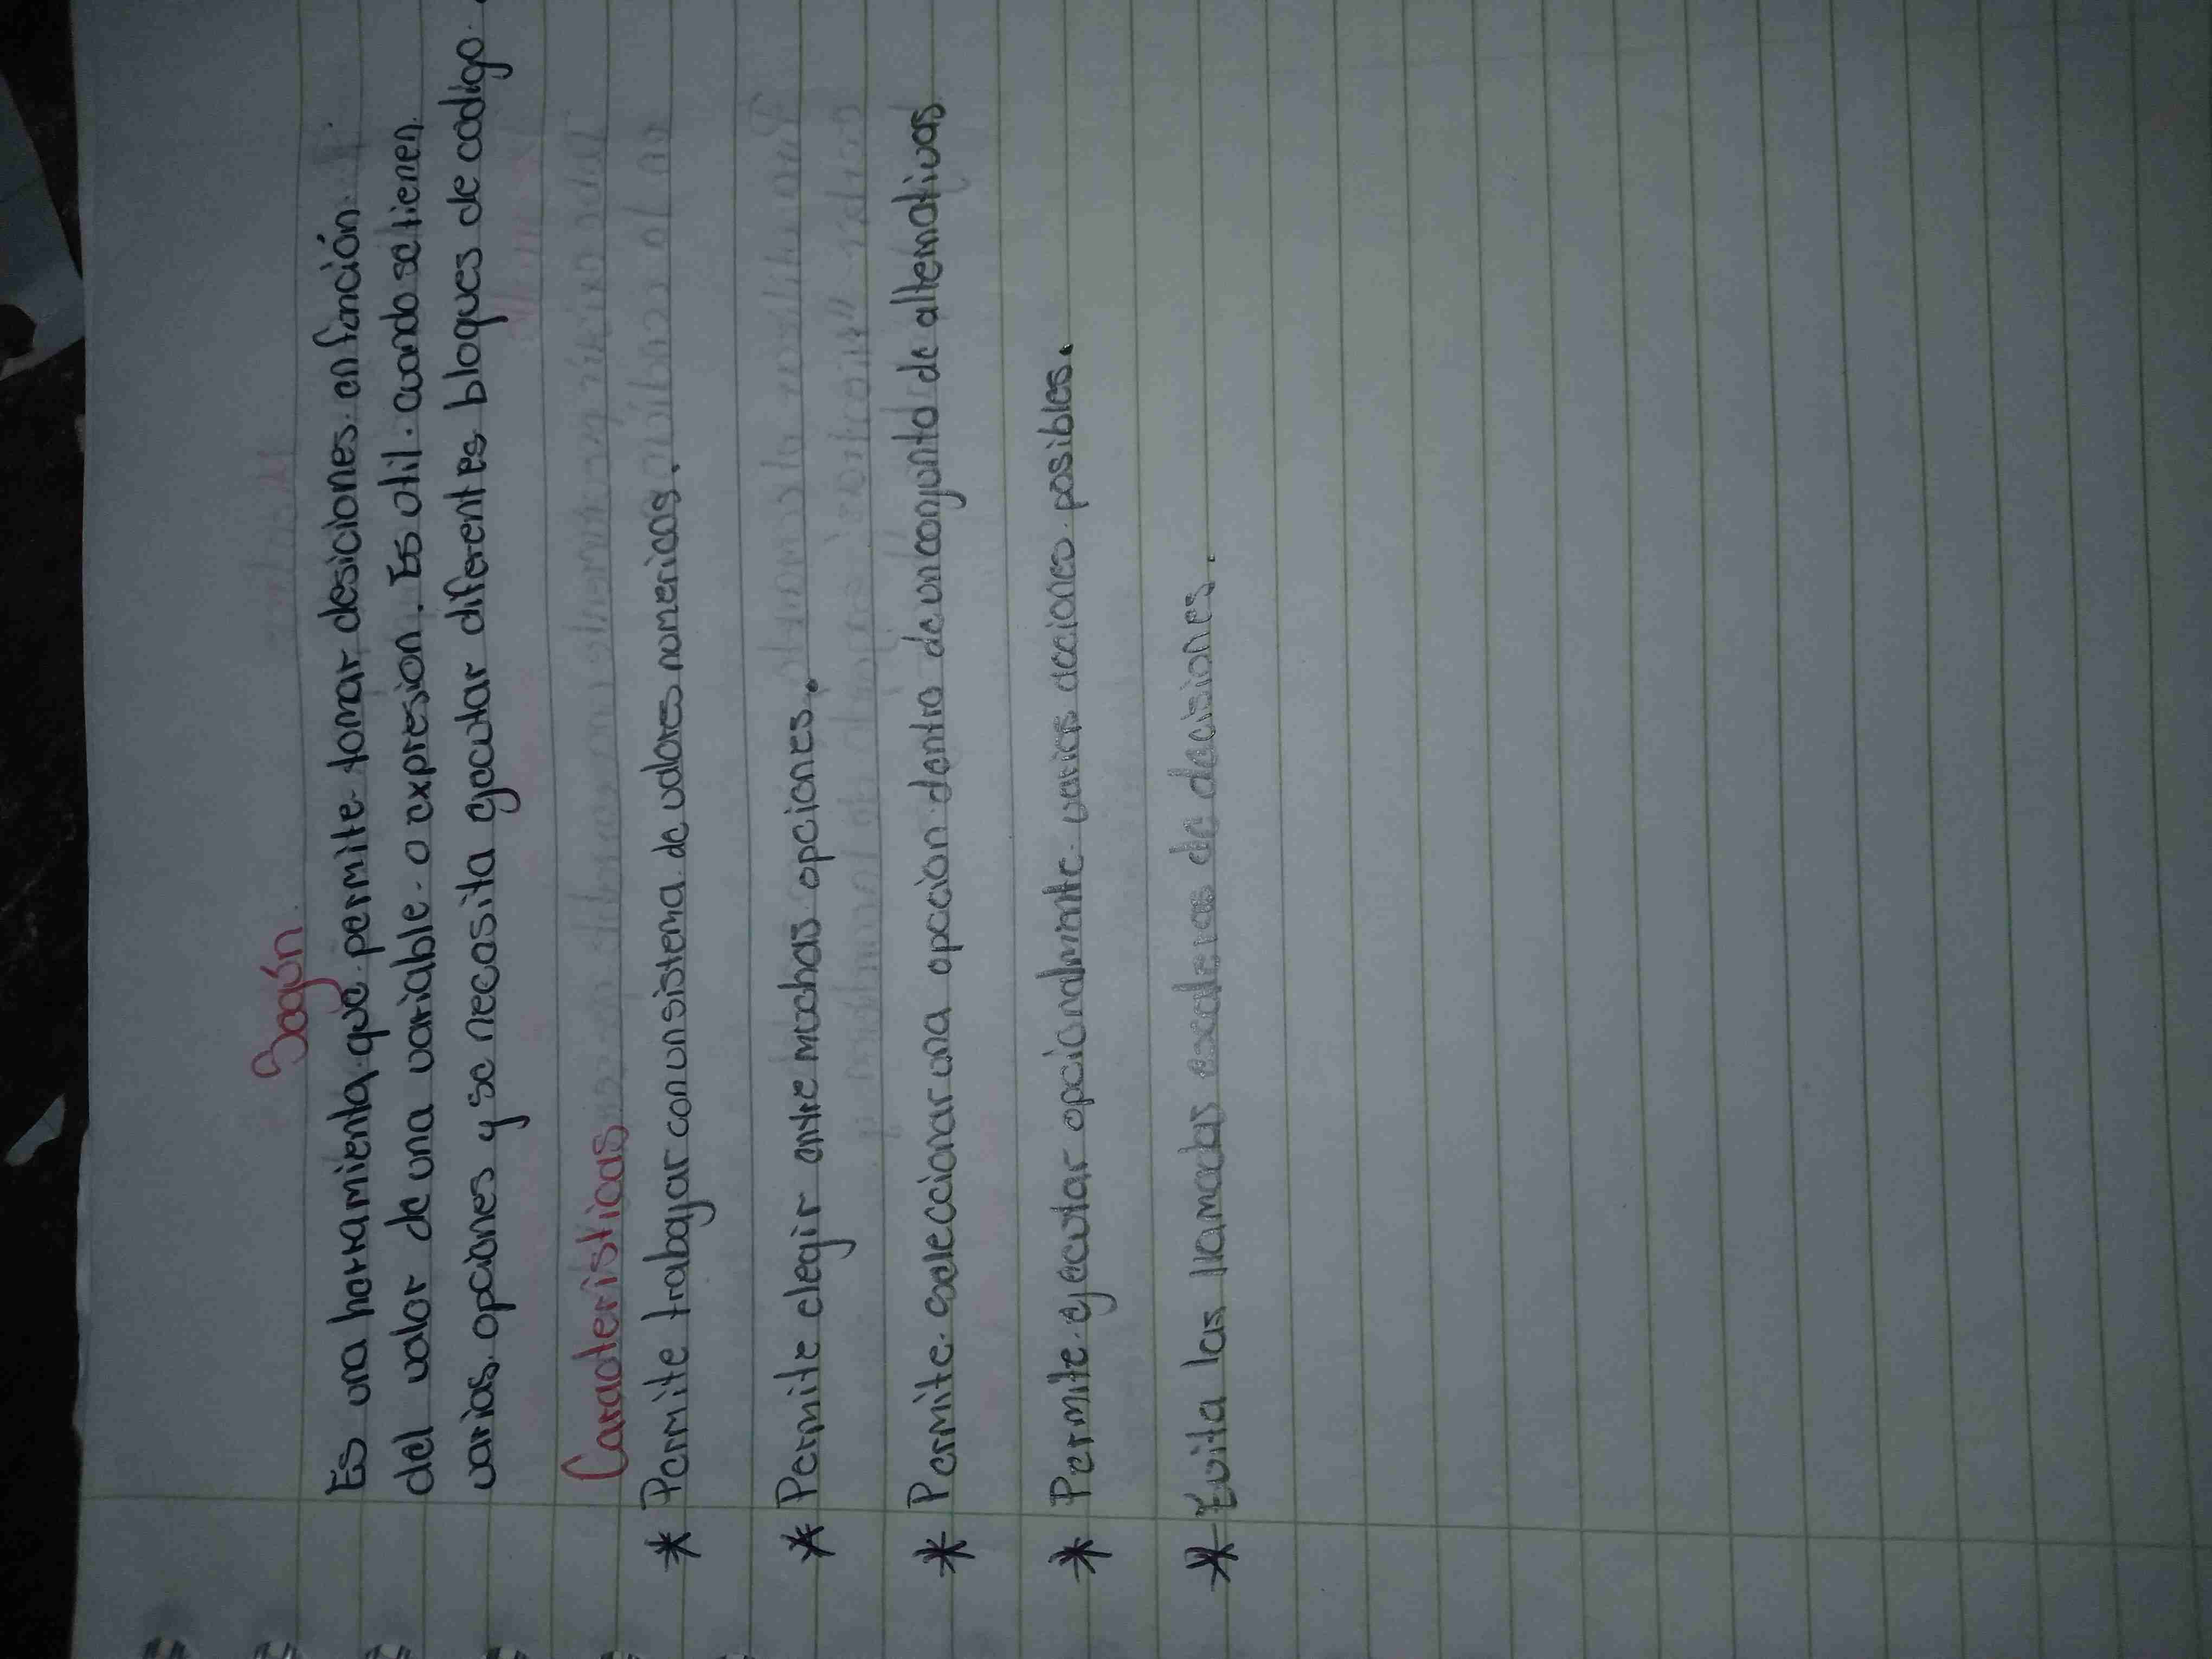 Sogún
Es una herramienta que permite tomar desiciones en función
del valor de una variable o expresion. Es util cuando se tienen
varias opciones y se necesita ejecutar diferentes bloques de codigo.
Caracteristicas
* Permite trabajar con un sistema de valores numericos.
* Permite elegir entre muchas opciones.
* Permite seleccionar una opccion dentro de un conjunto de alternativas
* Permite ejecutar opcionalmente varias acciones posibles.
* Evita las llamadas escaleras de decisiones.